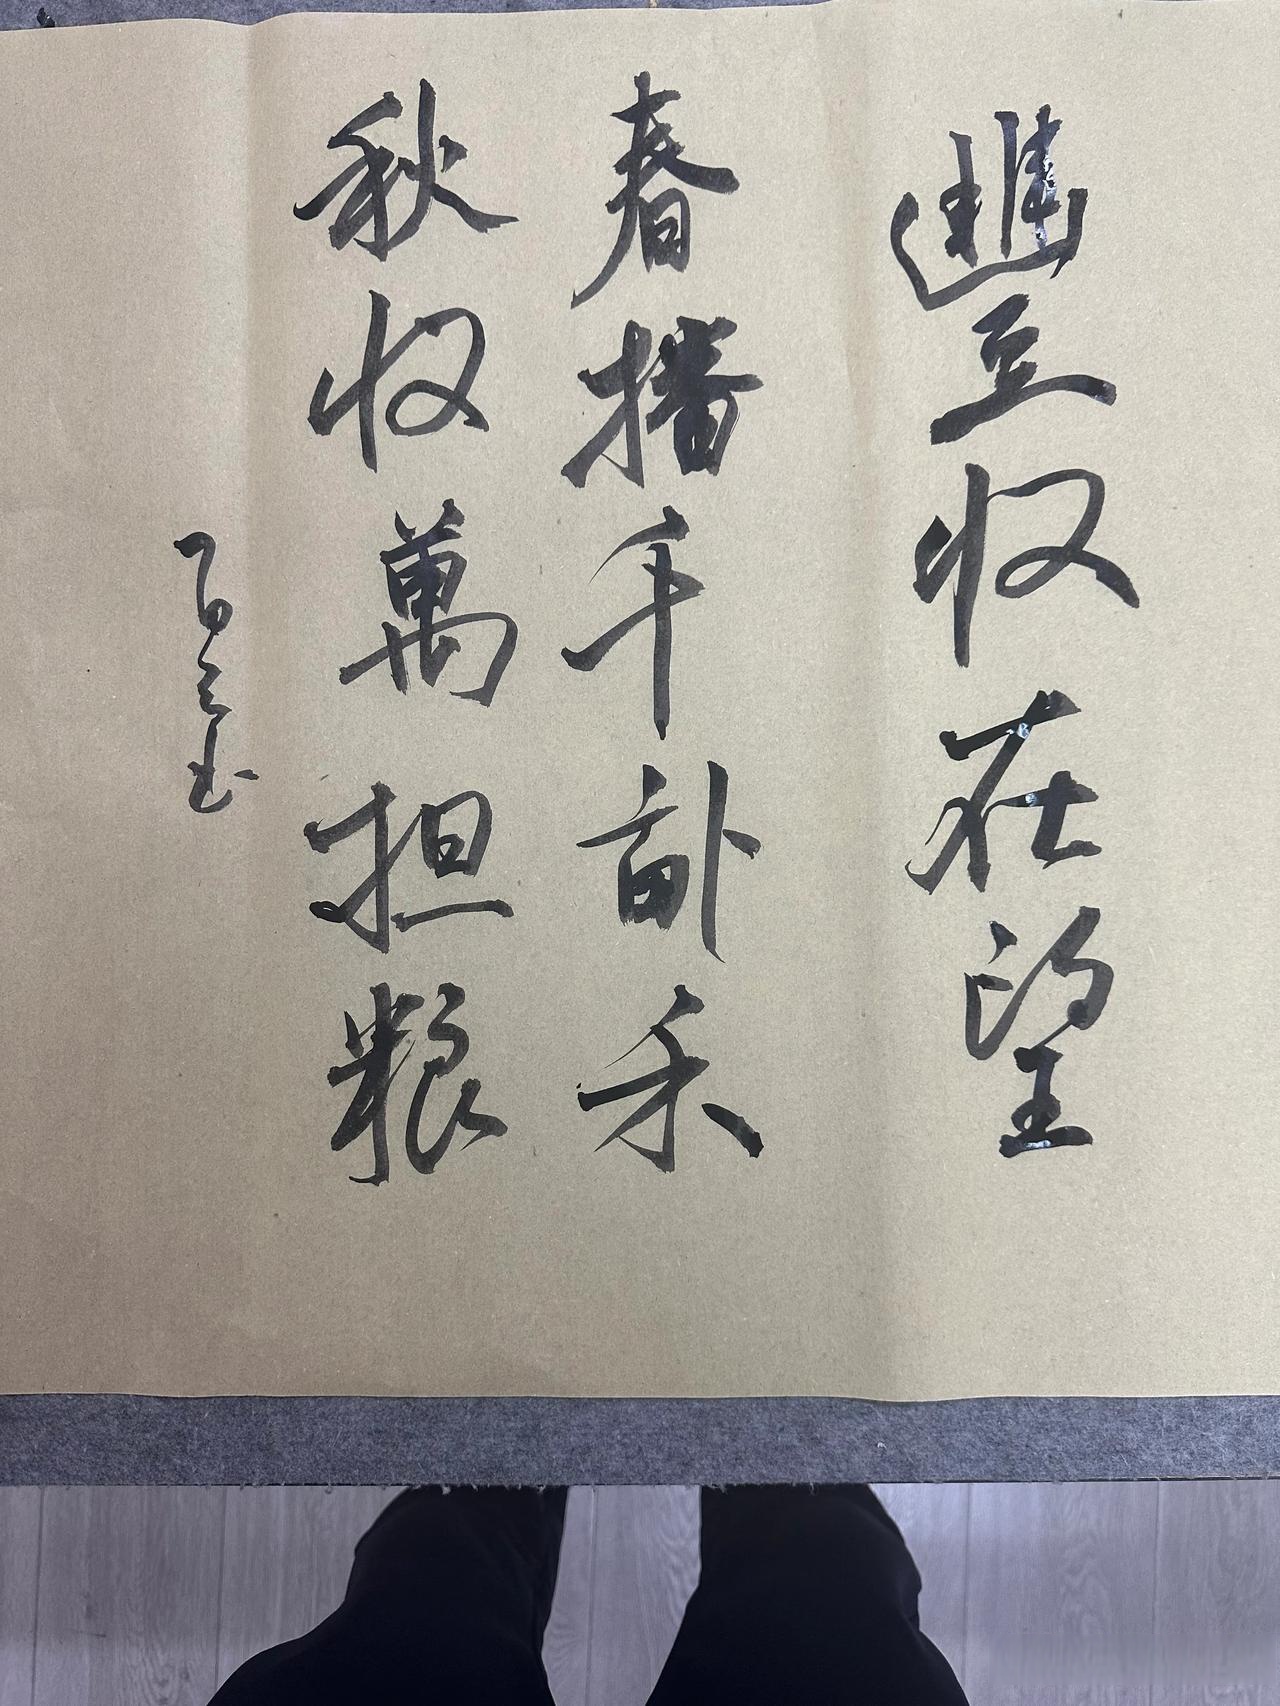 豐收在望
春播千畝禾
秋收萬担粮